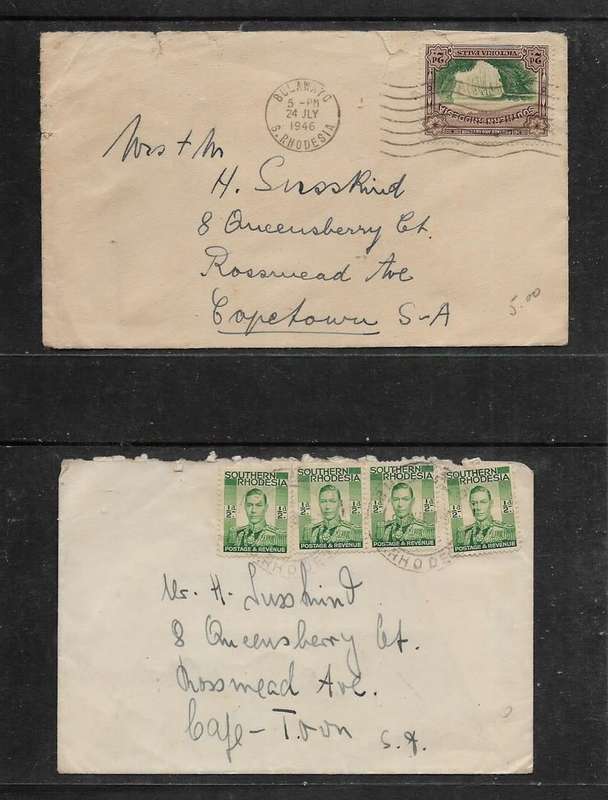 BULAWAYO
5 - PM
24 JLY
1946
S. RHODESIA
VICTORIA FALLS
2D 2D
SOUTHERN RHODESIA
Mrs + Mr
H. Susskind
8 Queensberry Ct.
Rossmead Ave
Capetown S-A
5.00
SOUTHERN RHODESIA
½d. ½d.
POSTAGE & REVENUE
SOUTHERN RHODESIA
½d. ½d.
POSTAGE & REVENUE
SOUTHERN RHODESIA
½d. ½d.
POSTAGE & REVENUE
SOUTHERN RHODESIA
½d. ½d.
POSTAGE & REVENUE
Mr. H. Susskind
8 Queensberry Ct.
Rossmead Ave.
Cape-Toon S.A.